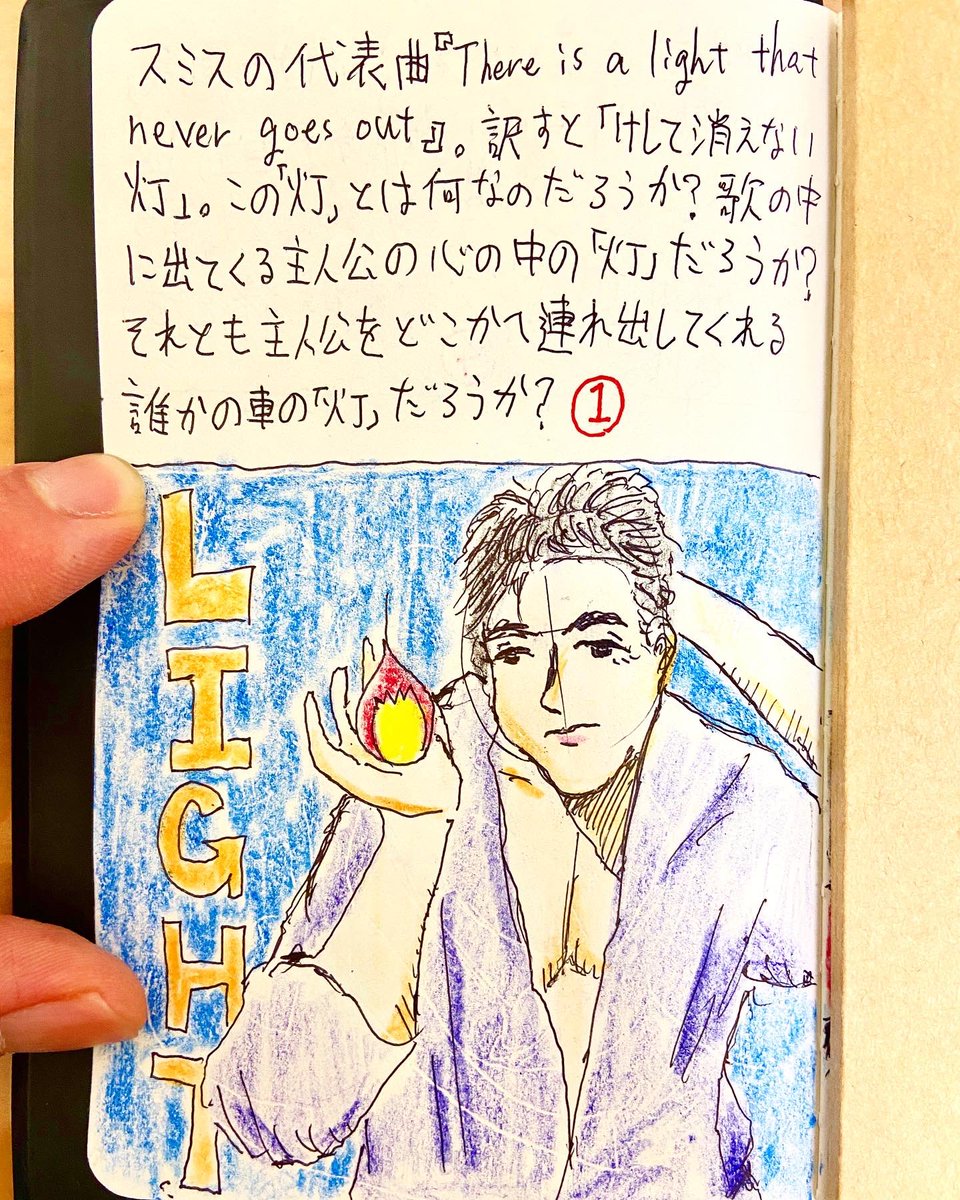 スミスの代表曲『There is a light that
never goes out』。訳すと「けして消えない
灯」。この「灯」とは何なのだろうか?歌の中
に出てくる主人公の心の中の「灯」だろうか?
それとも主人公をどこかへ連れ出してくれる
誰かの車の「灯」だろうか? ①
LIGHT